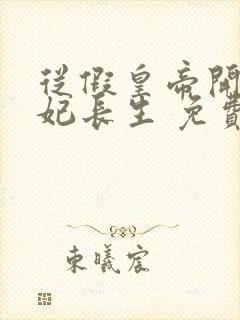 從假皇帝開
妃長生 免費
東曦宸